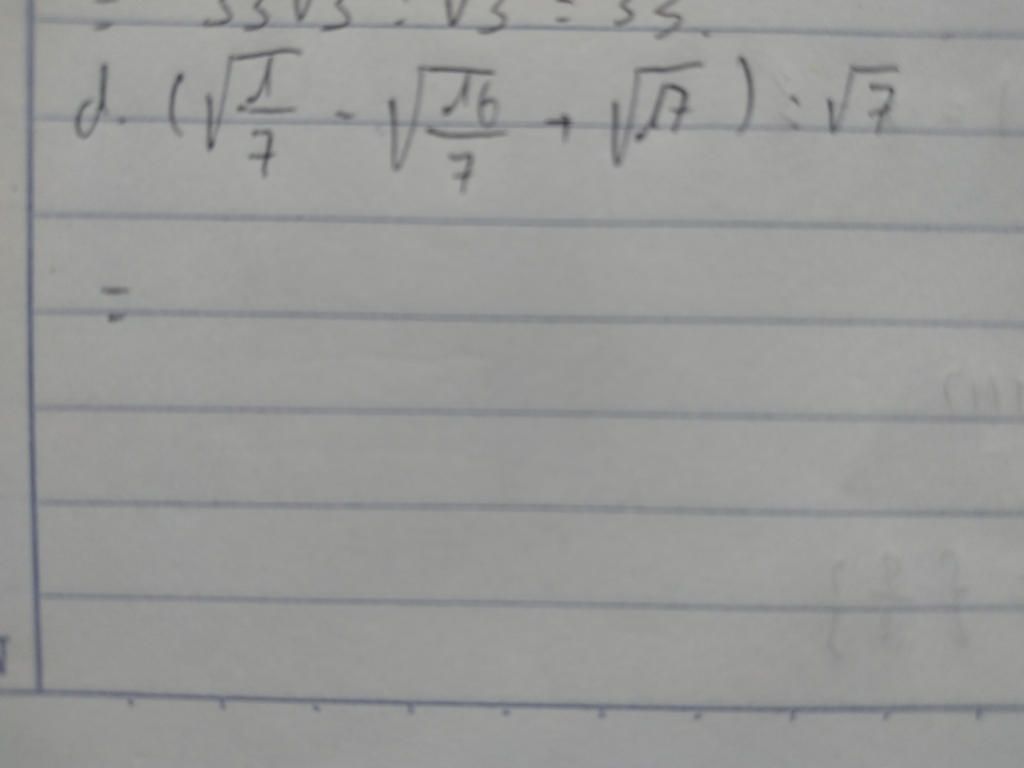 = 33√3 : √3 = 33.
d. (√1/7 - √16/7 + √17) : √7
=